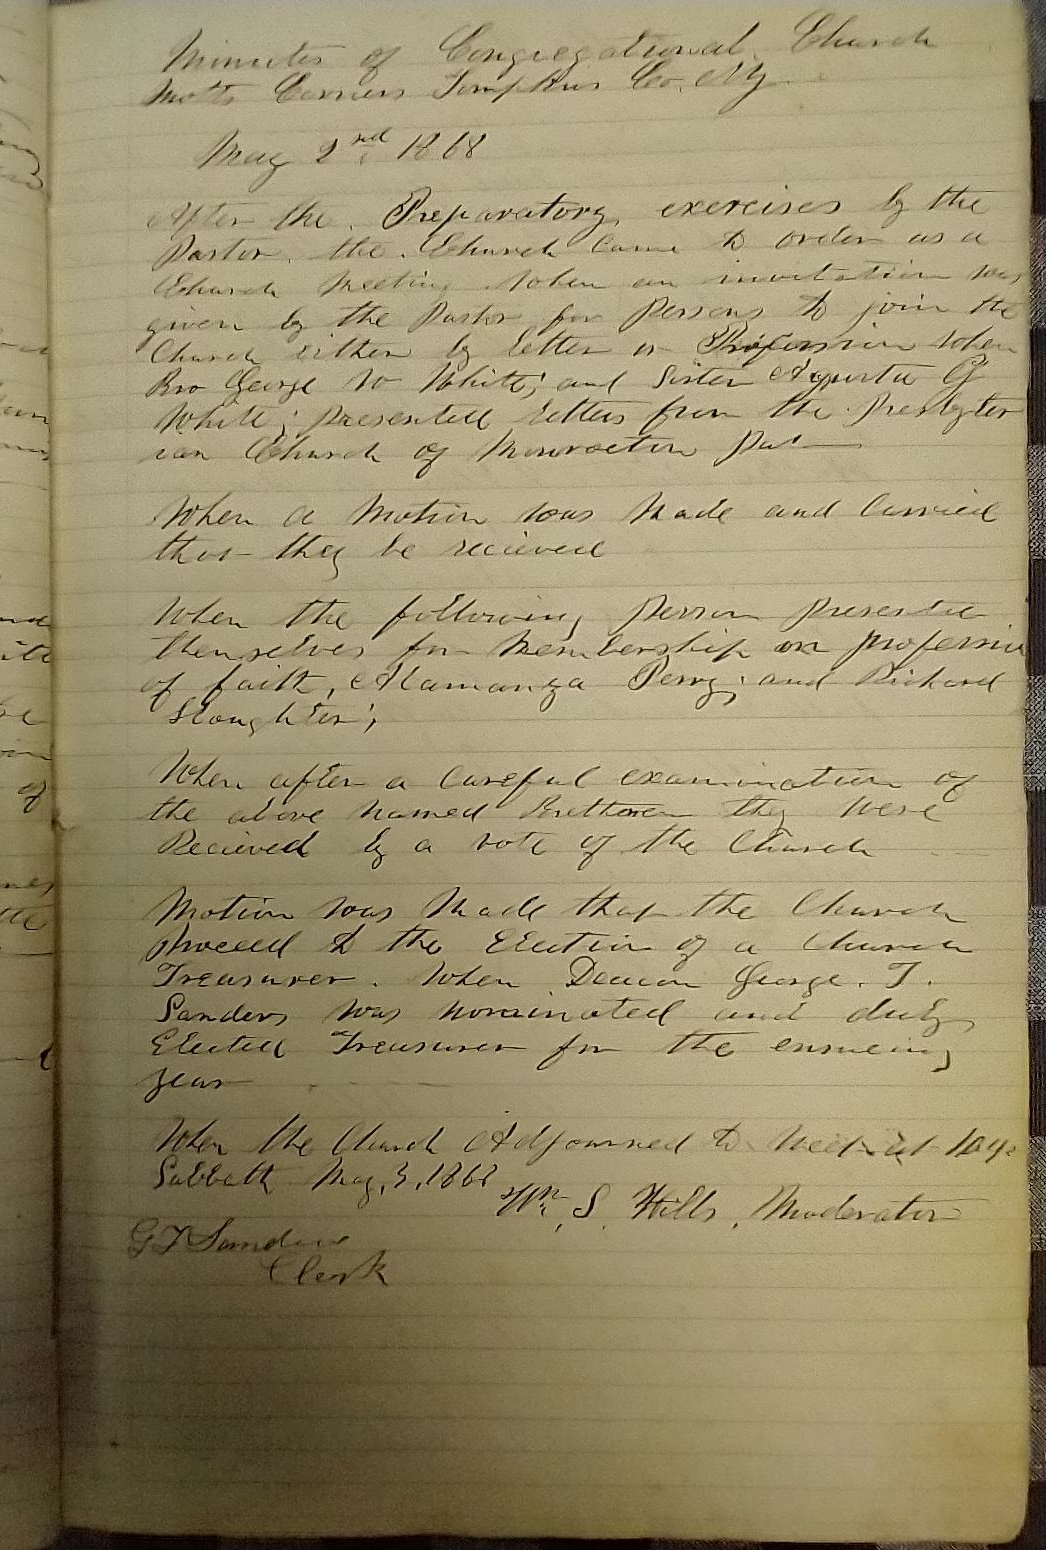 Minutes of Congregational Church
Motts Corners Tompkins Co. NY
May 2nd 1868
After the Preparatory exercises by the
Pastor, the Church Came to order as a
Church Meeting When an invitation was
given by the Pastor for Persons to join the
Church either by letter or Profession When
Bro George W White; and Sister Agusta G
White; presented letters from the Presbyter
ian Church of Pa
When a Motion was Made and Carried
that they be recieved
When the following Person presented
themselves for Membership on profession
of faith, Alamanza Perry; and Richard
Slaughter;
When after a Careful examination of
the above named Brethren they Were
Recieved by a vote of the Church
Motion was Made that the Church
proceed to the Election of a Church
Treasurer. When Deacon George. T.
Sanders was nominated and duly
Elected Treasurer for the ensueing
year
When the Church Adjourned to Meet at
Sabbath May, 3, 1868
Wm S. Hills, Moderator
G T Sanders
Clerk